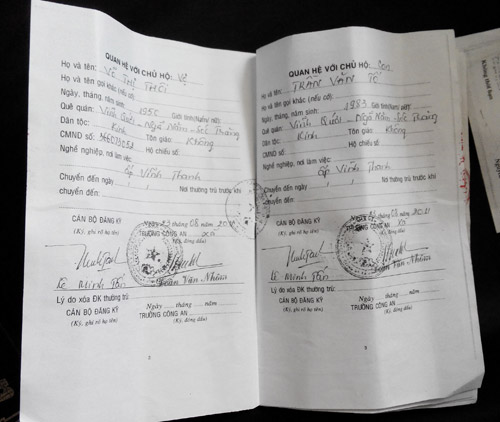 QUAN HỆ VỚI CHỦ HỘ: Vợ
Họ và tên: VÕ THỊ THÔI
Họ và tên gọi khác (nếu có):
Ngày, tháng, năm sinh: 1950 Giới tính(Nam/ nữ):
Quê quán: Vĩnh Quới - Ngã Năm - Sóc Trăng
Dân tộc: Kinh Tôn giáo: Không
CMND số: Hộ chiếu số:
Nghề nghiệp, nơi làm việc:
ấp Vĩnh Thanh
Chuyển đến ngày / / Nơi thường trú trước khi
chuyển đến:
Ngày 23 tháng 08 năm
CÁN BỘ ĐĂNG KÝ TRƯỞNG CÔNG AN xã
(Ký, ghi rõ họ tên) (Ký, đóng dấu)
Lê Minh Tấn Đoàn Văn Nhâm
Lý do xóa ĐK thường trú:
Ngày tháng năm
CÁN BỘ ĐĂNG KÝ TRƯỞNG CÔNG AN
(Ký, ghi rõ họ tên) (Ký, đóng dấu)
QUAN HỆ VỚI CHỦ HỘ: Con
Họ và tên: TRẦN VĂN TỐ
Họ và tên gọi khác (nếu có):
Ngày, tháng, năm sinh: 1985 Giới tính(Nam/ nữ):
Quê quán: Vĩnh Quới - Ngã Năm - Sóc Trăng
Dân tộc: Kinh Tôn giáo: Không
CMND số: Hộ chiếu số:
Nghề nghiệp, nơi làm việc:
ấp Vĩnh Thanh
Chuyển đến ngày / / Nơi thường trú trước khi
chuyển đến:
Ngày tháng 08 năm 2011
CÁN BỘ ĐĂNG KÝ TRƯỞNG CÔNG AN xã
(Ký, ghi rõ họ tên) (Ký, đóng dấu)
Lê Minh Tấn Đoàn Văn Nhâm
Lý do xóa ĐK thường trú:
Ngày tháng năm
CÁN BỘ ĐĂNG KÝ TRƯỞNG CÔNG AN
(Ký, ghi rõ họ tên) (Ký, đóng dấu)
Không thời hạn